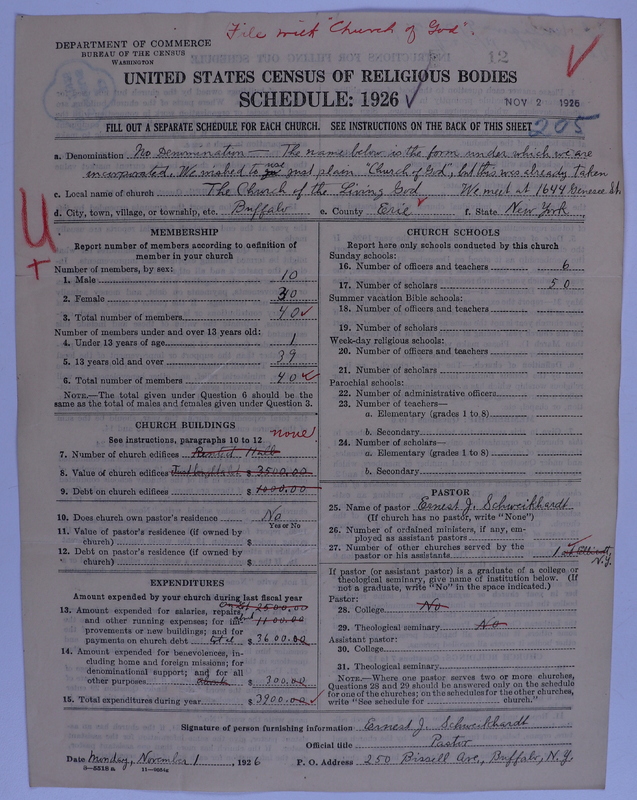 File with "Church of God".
DEPARTMENT OF COMMERCE
BUREAU OF THE CENSUS
WASHINGTON
12
UNITED STATES CENSUS OF RELIGIOUS BODIES
SCHEDULE: 1926
NOV 2 1926
FILL OUT A SEPARATE SCHEDULE FOR EACH CHURCH. SEE INSTRUCTIONS ON THE BACK OF THIS SHEET
205
a. Denomination No Denomination — The name below is the form under which we are
incorporated. We wished to use just plain "Church of God", but this was already taken
c. Local name of church The Church of the Living God We meet at 1644 Genesee St.
d. City, town, village, or township, etc. Buffalo e. County Erie f. State New York
U
+
MEMBERSHIP
Report number of members according to definition of
member in your church
Number of members, by sex:
1. Male 10
2. Female 30
3. Total number of members 40
Number of members under and over 13 years old:
4. Under 13 years of age 1
5. 13 years old and over 39
6. Total number of members 40
NOTE.—The total given under Question 6 should be the
same as the total of males and females given under Question 3.
CHURCH BUILDINGS
See instructions, paragraphs 10 to 12 none
7. Number of church edifices Rented Hall
8. Value of church edifices $ 3500.00
9. Debt on church edifices $ 1000.00
10. Does church own pastor's residence No
Yes or No
11. Value of pastor's residence (if owned by
church) $
12. Debt on pastor's residence (if owned by
church) $
EXPENDITURES
Amount expended by your church during last fiscal year
13. Amount expended for salaries, repairs, 2500.00
and other running expenses; for im- 1100.00
provements or new buildings; and for
payments on church debt $ 3600.00
14. Amount expended for benevolences, in-
cluding home and foreign missions; for
denominational support; and for all
other purposes $ 300.00
15. Total expenditures during year $ 3900.00
CHURCH SCHOOLS
Report here only schools conducted by this church
Sunday schools:
16. Number of officers and teachers 6
17. Number of scholars 50
Summer vacation Bible schools:
18. Number of officers and teachers
19. Number of scholars
Week-day religious schools:
20. Number of officers and teachers
21. Number of scholars
Parochial schools:
22. Number of administrative officers
23. Number of teachers—
a. Elementary (grades 1 to 8)
b. Secondary
24. Number of scholars—
a. Elementary (grades 1 to 8)
b. Secondary
PASTOR
25. Name of pastor Ernest J. Schweikhardt
(If church has no pastor, write "None")
26. Number of ordained ministers, if any, em-
ployed as assistant pastors
27. Number of other churches served by the
pastor or his assistants 1 N.Y.
If pastor (or assistant pastor) is a graduate of a college or
theological seminary, give name of institution below. (If
not a graduate, write "No" in the space indicated.)
Pastor:
28. College No
29. Theological seminary No
Assistant pastor:
30. College
31. Theological seminary
NOTE.—Where one pastor serves two or more churches,
Questions 28 and 29 should be answered only on the schedule
for one of the churches; on the schedules for the other churches,
write "See schedule for church."
Signature of person furnishing information Ernest J. Schweikhardt
Official title Pastor
Date Monday, November 1, 1926 P. O. Address 250 Bissell Ave., Buffalo, N.Y.